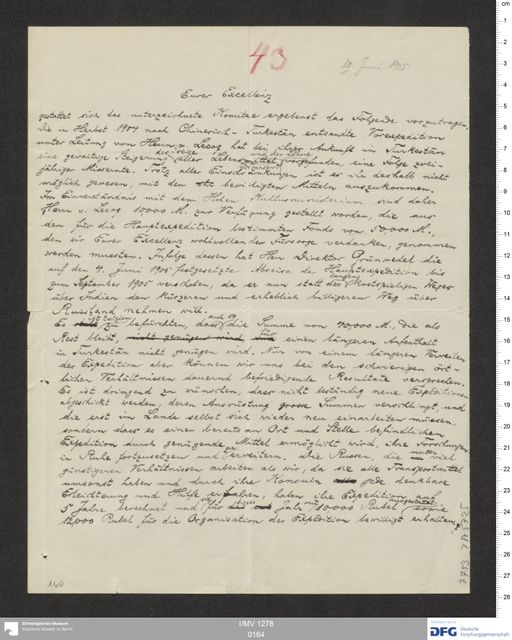 43
10. Juni 1905
Eurer Excellenz
gestattet sich das unterzeichnete Komitee ergebenst das Folgende vorzutragen.
Die im Herbst 1904 nach Chinesisch-Turkestân entsandte Vorexpedition
unter Leitung von Herrn v. Lecoq hat bei ihrer Ankunft in Turkestân
eine gewaltige Steigerung aller Lebensmittel vorgefunden, eine Folge zwei-
und der Löhne
jähriger Missernte. Trotz aller Einschränkungen ist es ihr deshalb nicht
möglich gewesen, mit den bewilligten Mitteln auszukommen.
Im Einverständnis mit dem Hohen Kultusministerium sind daher
Herrn v. Lecoq 10000 M. zur Verfügung gestellt worden, die aus
dem für die Hauptexpedition bestimmten Fonds von 50000 M.,
den wir Eurer Excellenz wohlwollender Fürsorge verdanken, genommen
werden mussten. Infolge dessen hat Herr Direktor Grünwedel die
auf den 4. Juni 1905 festgesetzte Abreise der Hauptexpedition bis
zum September 1905 verschoben, da er nun statt des kostspieligen Weges
über Indien den kürzeren und erheblich billigeren Weg über
Russland nehmen will.
Es ist zu befürchten, dass die Summe von 40000 M. die als
Rest bleibt für einen längeren Aufenthalt
in Turkestân nicht genügen wird. Nur von einem längeren Verweilen
der Expedition aber können wir uns bei den schwierigen ört-
lichen Verhältnissen dauernd befriedigende Resultate versprechen.
Es ist dringend zu wünschen, dass nicht beständig neue Expeditionen
abgeschickt werden, deren Ausrüstung grosse Summen verschlingt und
die erst im Lande selbst sich wieder neu einarbeiten müssen,
sondern dass es einer bereits an Ort und Stelle befindlichen
Expedition durch genügende Mittel ermöglicht wird, ihre Forschungen
in Ruhe fortzusetzen und zu erweitern. Die Russen, die unter viel
günstigeren Verhältnissen arbeiten als wir, da sie alle Transportmittel
umsonst haben und durch ihre Konsuln jede denkbare
Erleichterung und Hilfe erfahren, haben ihre Expedition auf
5 Jahre berechnet und für Jahr 10000 Rubel sowie
12000 Rubel für die Organisation der Expedition bewilligt erhalten.
160
I/MV 1278
0164
Ethnologisches Museum
Staatliche Museen zu Berlin
DFG
Deutsche
Forschungsgemeinschaft